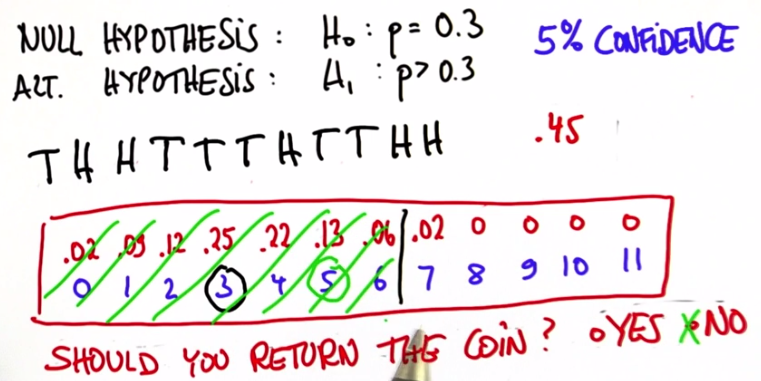 NULL HYPOTHESIS : H₀ : p = 0.3 5% CONFIDENCE
ALT. HYPOTHESIS : H₁ : p > 0.3
T H H T T T H T T H H .45
.02 .09 .12 .25 .22 .13 .06 .02 0 0 0 0
0 1 2 3 4 5 6 7 8 9 10 11
SHOULD YOU RETURN THE COIN ? o YES o NO